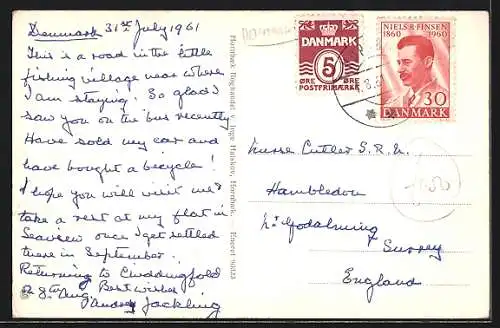 Denmark 31st July 1961
This is a road in the little
fishing village near where
I am staying! So glad I
saw you on the bus recently
Have sold my car and
have bought a bicycle!
I hope you will visit me &
take a rest at my flat in
Seaview once I get settled
there in September.
Returning to Chiddingfold
8th Aug. Best wishes
Audrey Jackling
Hornbæk Boghandel v. Inge Hulskov, Hornbæk. Eneret 98323
DANMARK
5
ØRE ØRE
POSTFRIMÆRKE
NIELS R FINSEN
1860 1960
30
DANMARK
Nurse Cutler S.R.N.
Hambledon
Nr Godalming
Surrey
England